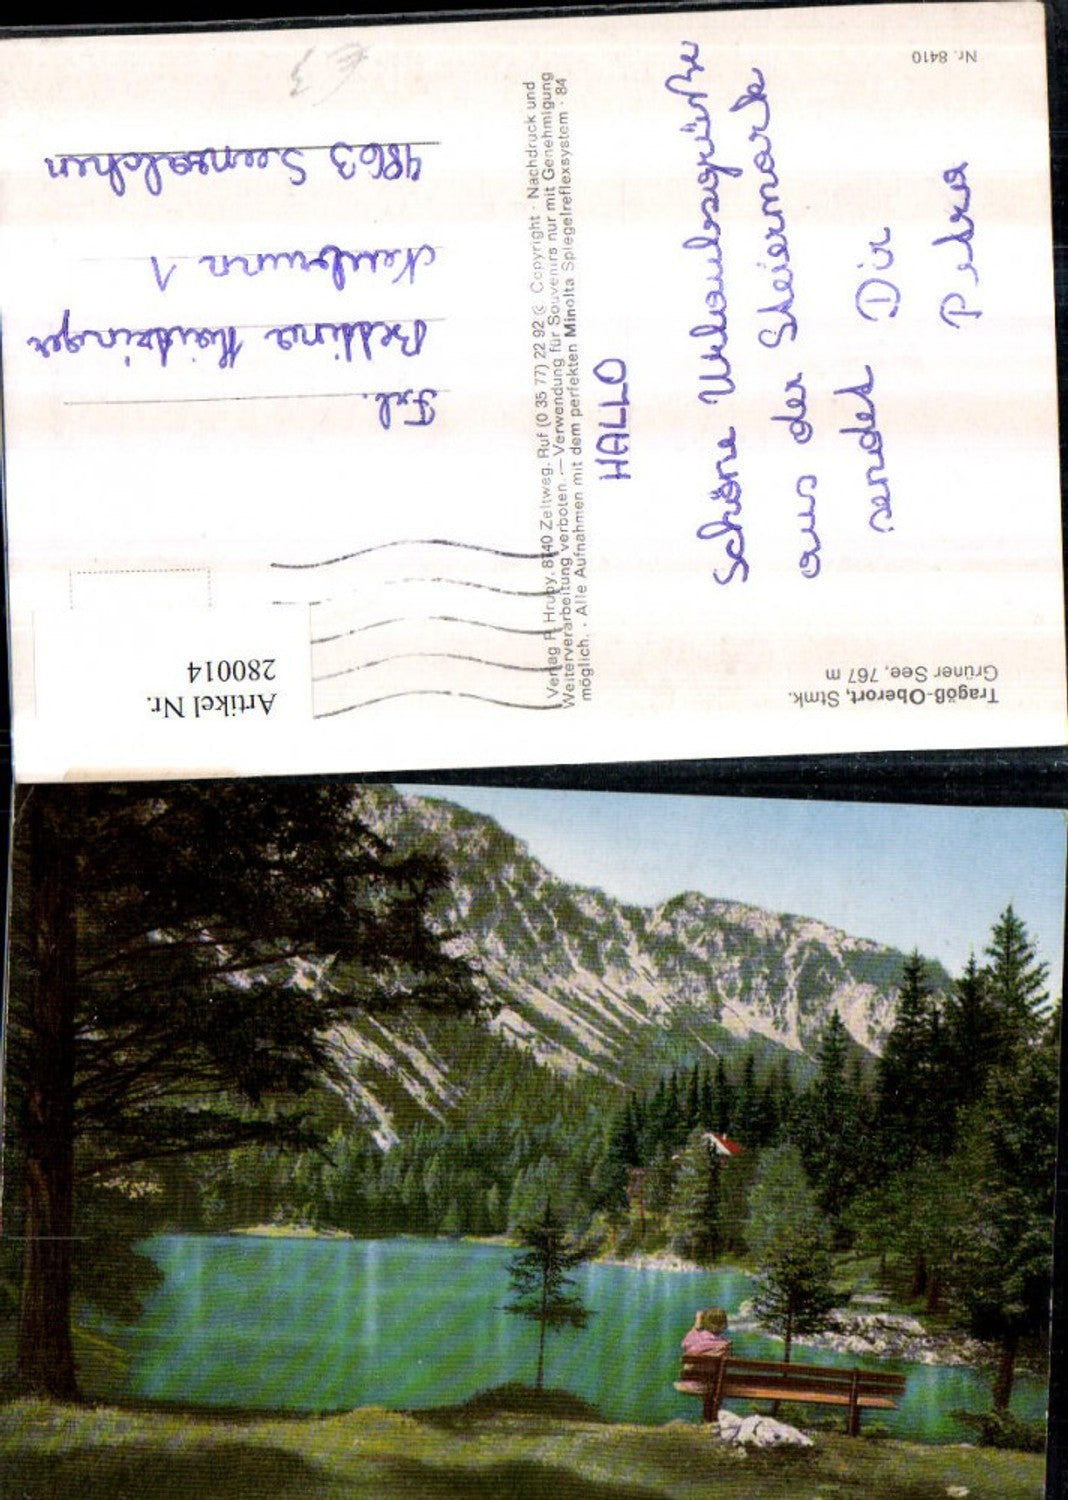 Tragöß-Oberort, Stmk.
Grüner See, 767 m
Nr. 8410
HALLO
Schöne Urlaubsgrüße
aus der Steiermark
sendet Dir
Petra
Verlag P. Hruby, 8740 Zeltweg. Ruf (0 35 77) 22 92 © Copyright - Nachdruck und
Weiterverarbeitung verboten. — Verwendung für Souvenirs nur mit Genehmigung
möglich. - Alle Aufnahmen mit dem perfekten Minolta Spiegelreflexsystem - 84
Artikel Nr.
280014
Frl.
Bettina
Neubrunn 1
4863 Seewalchen
€ 3